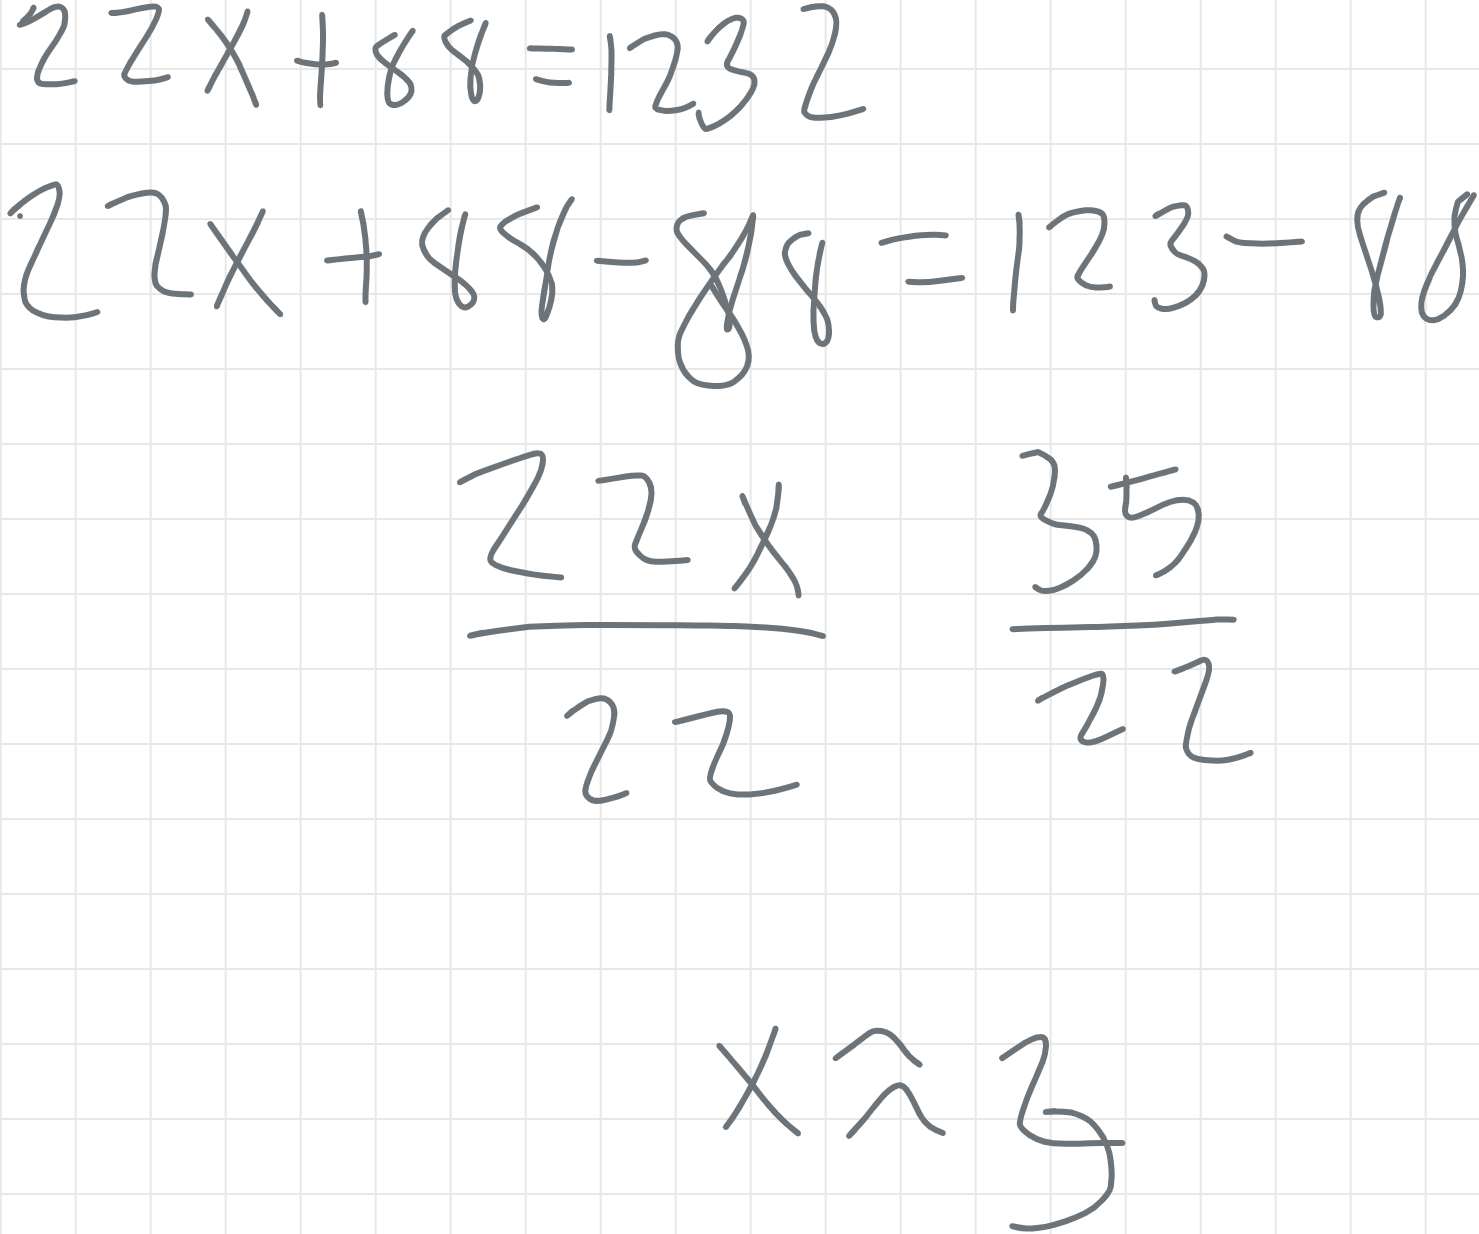 22x+88=1232
22x+88-88=123-88
22x 35
22 22
x≈